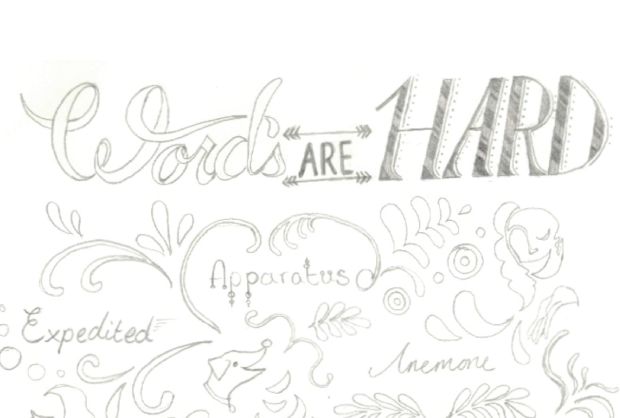 Words ARE HARD
Apparatus
Expedited
Anemone